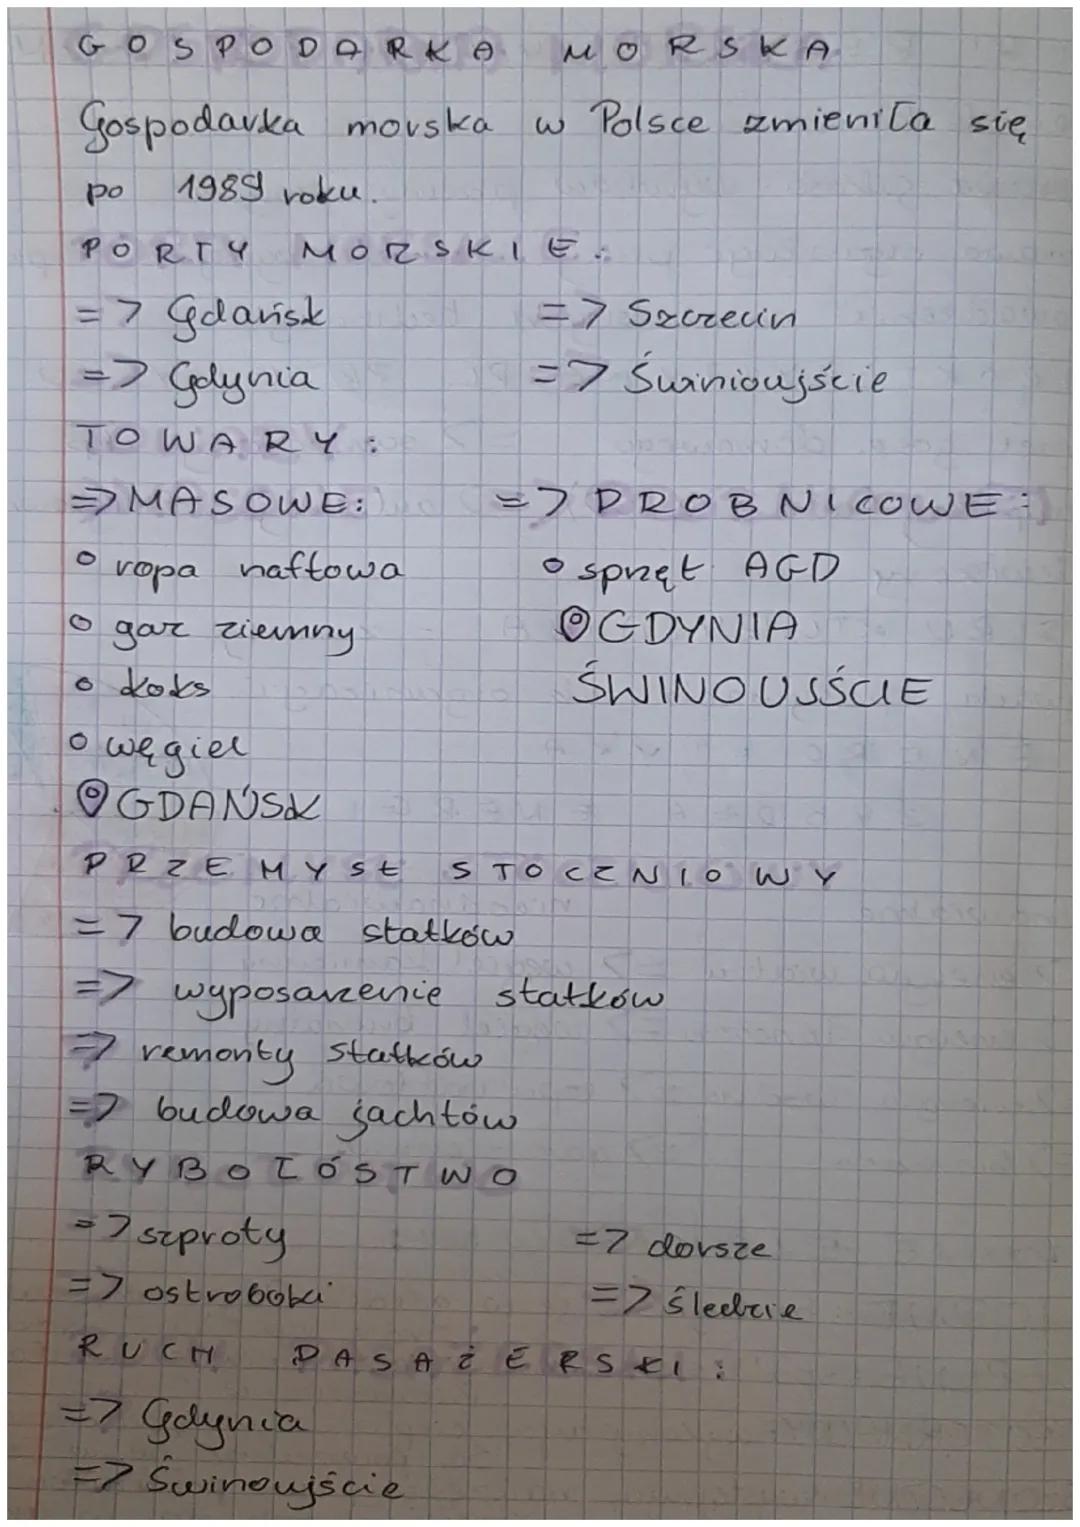 GOSPODARKA MORSKA
Gospodarka morska w Polsce zmieniła się
po 1989 roku.
PORTY MORSKIE:
=> Gdańsk => Szczecin
=> Gdynia => Świnioujście
TOWARY:
=> MASOWE: => DROBNICOWE:
o ropa naftowa o sprzęt AGD
o gaz ziemny GDYNIA
o koks ŚWINOUJŚCIE
o węgiel
GDAŃSK
PRZEMYSŁ STOCZNIOWY
=> budowa statków
=> wyposażenie statków
=> remonty statków
=> budowa jachtów
RYBOŁÓSTWO
=> szproty => dorsze
=> ostroboki => śledzie
RUCH PASAŻERSKI:
=> Gdynia
=> Świnoujście